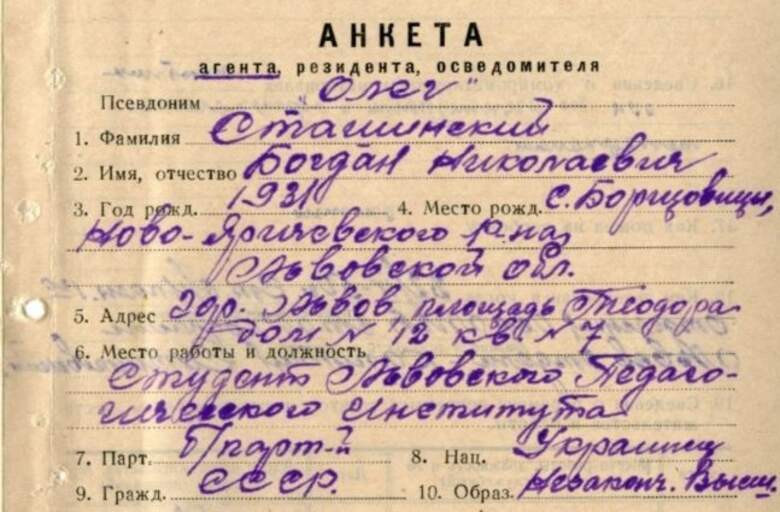 АНКЕТА
агента, резидента, осведомителя
Псевдоним „Олег"
1. Фамилия Сташинский
2. Имя, отчество Богдан Николаевич
3. Год рожд. 1931 4. Место рожд. с. Борщовицы,
Ново-Яричевского р-на,
Львовской обл.
5. Адрес гор. Львов площадь Теодора
дом № 12 кв. № 7
6. Место работы и должность
Студент Львовского Педаго-
гического института
7. Парт. б/парт-й 8. Нац. Украинец
9. Гражд. СССР. 10. Образ. Незаконч. Высш.